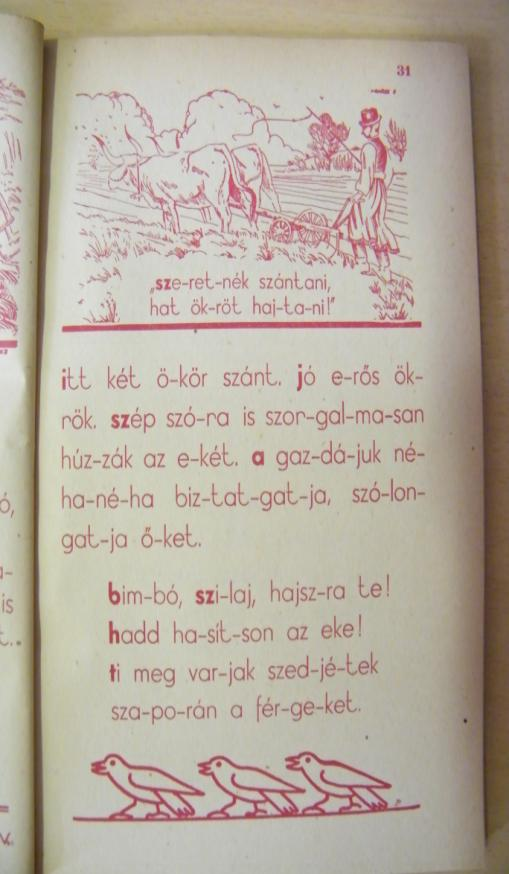 31
„sze-ret-nék szántani,
hat ök-röt haj-ta-ni!"
itt két ö-kör szánt. jó e-rős ök-
rök. szép szó-ra is szor-gal-ma-san
húz-zák az e-két. a gaz-dá-juk né-
ha-né-ha biz-tat-gat-ja, szó-lon-
gat-ja ő-ket.
bim-bó, szi-laj, hajsz-ra te!
hadd ha-sít-son az eke!
ti meg var-jak szed-jé-tek
sza-po-rán a fér-ge-ket.